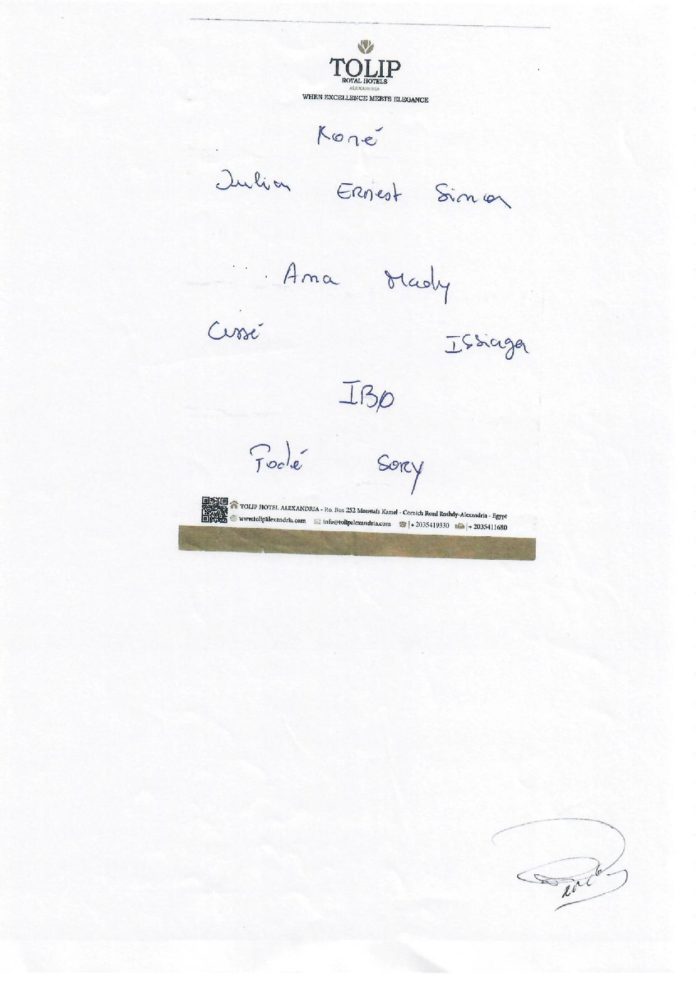 TOLIP
ROYAL HOTELS
ALEXANDRIA
WHEN EXCELLENCE MEETS ELEGANCE
Koné
Julian Ernest Simon
Ama Mady
Cissé Issiaga
IBO
Fodé Sory
TOLIP HOTEL ALEXANDRIA - Po. Box 252 Moustafa Kamel - Cornich Road Roshdy-Alexandria - Egypt
www.tolipalexandria.com info@tolipalexandria.com + 2035419330 + 2035411680